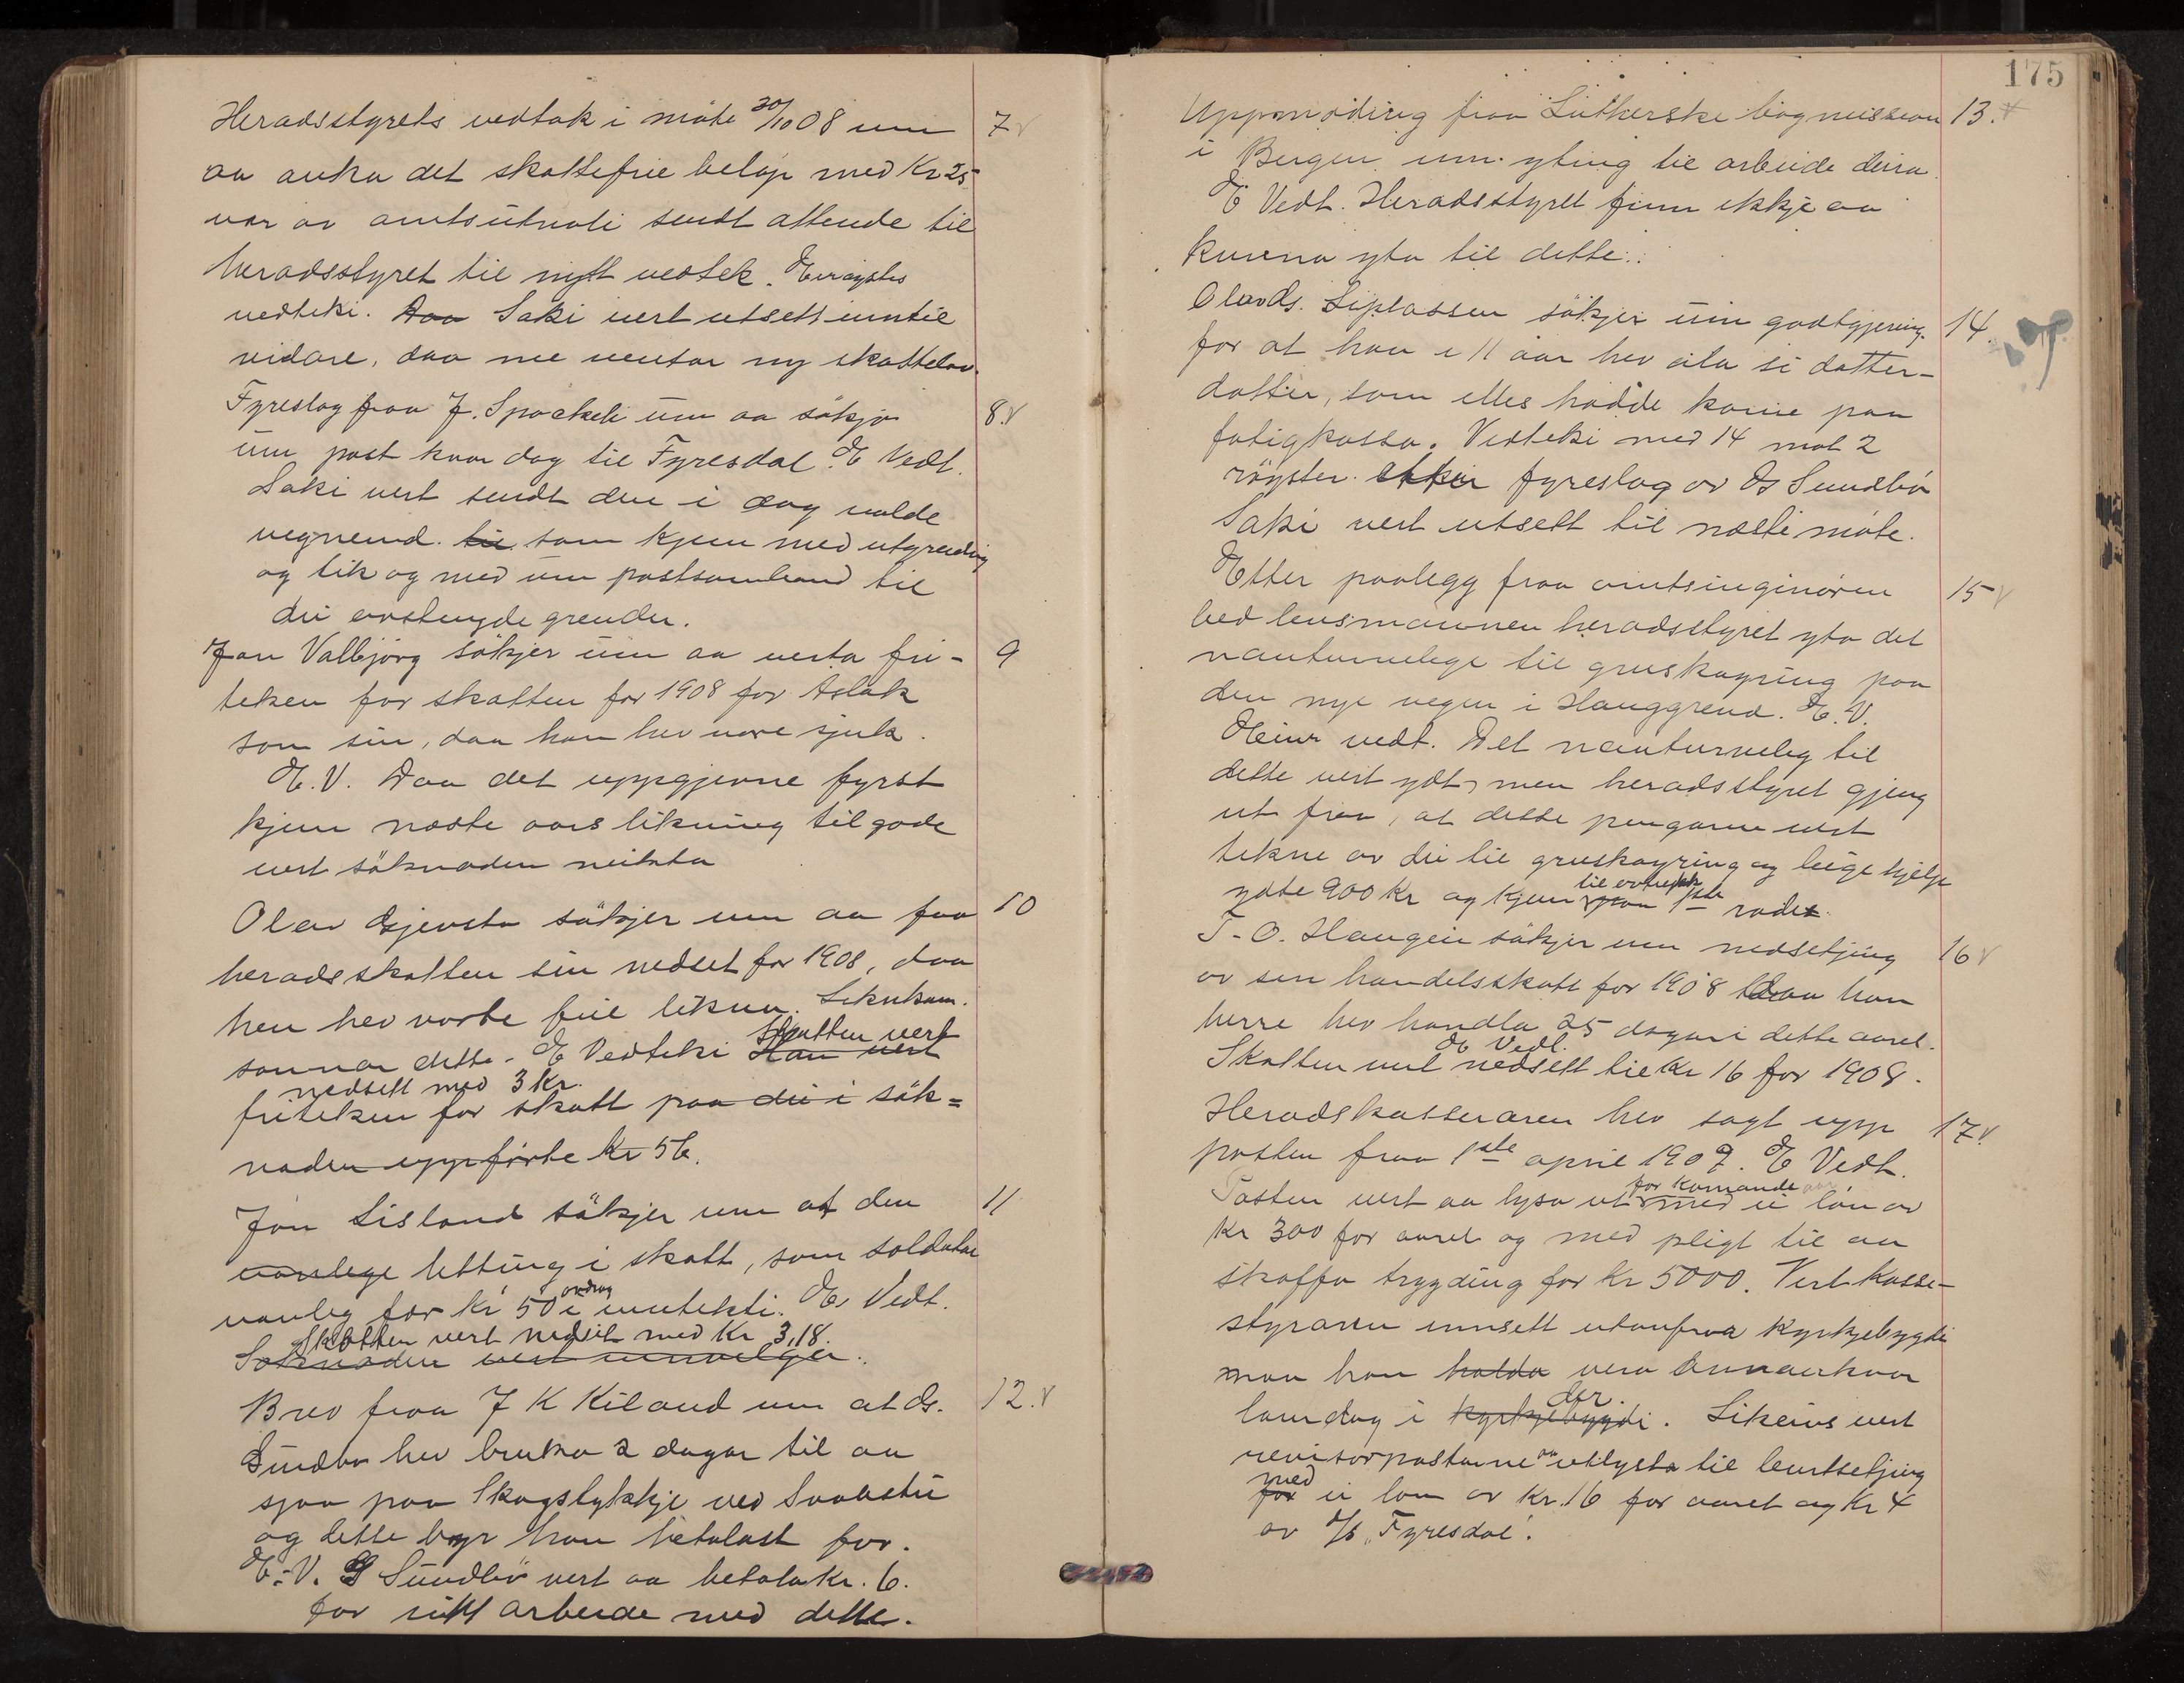 Heradsstyrets vedtak i möte 30/10 08 um 7
aa auka det skattefrie belöp med Kr 25
var av amtsutvali sendt attende til
heradsstyret til nytt vedtek. Einröystes
vedteki. Daa Saki vert utsett inntil
vidare, daa me ventar ny skattelov.
Fyreslag fraa J. Spockeli um aa sökja 8.
um post kvar dag til Fyresdal. E Vedt.
Saki vert sendt den i dag valde
vegnemd. til som kjem med utgreiding
og lik og med um postsamband til
dei avstengde grender.
Jon Valbjörg sökjer um aa verta fri- 9
teken for skatten for 1908 for Aslak
son sin, daa han hev vore sjuk.
E. V. Daa det uppgjevne fyrst
kjem næste aars likning tilgode
vert söknaden neitta
Olav Gjevsta sökjer um aa faa 10
heradsskatten sin nedset for 1908, daa
hen hev vorte feil likna. Liknkom.
sannar dette. E Vedteki Skatten vert Han vert
nedsett med 3 Kr.
friteken for skatt paa dei i sök=
naden uppförte Kr 56.
Jon Lisland sökjer um at den 11
vanlege letting i skatt, som soldatar
vanleg for Kr 50 i avdrag inntekti. E. Vedt.
Skatten vert nedsett med Kr 3,18.
Söknaden vert innvelga.
Brev fraa J K Kiland um at ds. 12.
Sundbö hev bruka 2 dagar til aa
sjaa paa Skogstykkje ved
og dette bör han betalast for.
E. V. G Sundbö vert aa betala Kr. 6.
for sitt arbeide med dette.
175
Uppmoding fraa Lutherske bogmission 13.
i Bergen um yting til arbeide deira.
E Vedt. Heradsstyret finn ikkje aa
kunna yta til dette.
Olav Ds. Liplassen sökjer um godtgjering. 14.
for at han i 11 aar hev ala si datter-
datter, som elles hadde kome paa
fatigkassa. Vedteki med 14 mot 2
röyster etter fyreslag av Ds Sundbö
Saki vert utsett til næste möte.
Etter paalegg fraa amtsingeniören 15
bed lensmannen heradsstyret yta det
nauturvelege til gruskøyring paa
den nye vegen i Hauggrend. E. V.
Einr vedt. Det nauturveleg til
dette vert ydt, men heradsstyret gjeng
ut fraa, at desse pengarne vert
tekne av dei til gruskøyring og leige hjelp
ydte 900 Kr og kjem til avtrekk paa 1ste rode.
T. O. Haugen sökjer um nedsetjing 16
av sin handelsskatt for 1908 daa han
berre hev handla 25 dagar i dette aaret.
E Vedt.
Skatten vert nedsett til Kr 16 for 1908.
Heradskasseraren hev sagt upp 17.
posten fraa 1ste april 1909. E Vedt.
Posten vert aa lysa ut for komande aar med ei lön av
Kr 300 for aaret og med pligt til aa
skaffa trygding for Kr 5000. Vert kasse-
styraren innsett utanfraa Kyrkjebygdi
maa han halda vera annankvar
laurdag i kyrkjebygdi der. Likeins vert
revisorpostarne aa utlysta til burtsetjing
med for ei lön av Kr. 16 for aaret og Kr 4
av D/S "Fyresdal".